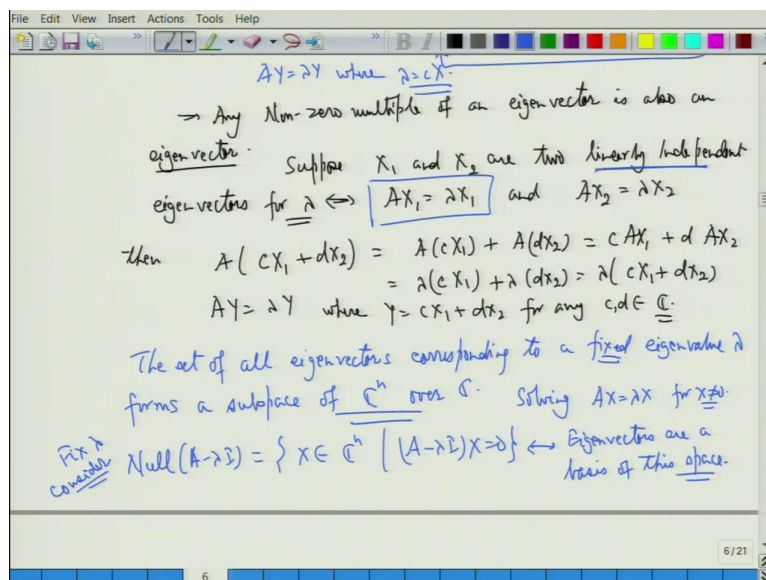 File Edit View Insert Actions Tools Help
AY = λY where λ = cX.
→ Any Non-zero multiple of an eigenvector is also an
eigenvector. Suppose X₁ and X₂ are two linearly Independent
eigenvectors for λ ⟺ AX₁ = λX₁ and AX₂ = λX₂
then A(CX₁ + dX₂) = A(CX₁) + A(dX₂) = C AX₁ + d AX₂
= λ(CX₁) + λ(dX₂) = λ(CX₁ + dX₂)
AY = λY where Y = CX₁ + dX₂ for any c,d ∈ ℂ.
The set of all eigenvectors corresponding to a fixed eigenvalue λ
forms a subspace of ℂⁿ over ℂ. Solving AX = λX for X≠0.
Fix λ
consider Null(A-λI) = { X ∈ ℂⁿ | (A-λI)X = 0 } ⟷ Eigenvectors are a
basis of this space.
6/21
6